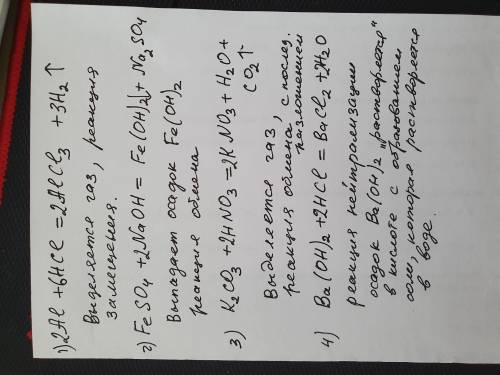 1) 2Al + 6HCl = 2AlCl3 + 3H2↑
Выделяется газ, реакция
замещения.
2) FeSO4 + 2NaOH = Fe(OH)2↓ + Na2SO4
Выпадает осадок Fe(OH)2
реакция обмена
3) K2CO3 + 2HNO3 = 2KNO3 + H2O +
CO2↑
Выделяется газ,
реакция обмена с послед.
разложением
4) Ba(OH)2 + 2HCl = BaCl2 + 2H2O
реакция нейтрализации
осадок Ba(OH)2 "растворяется"
в кислоте с образованием
соли, которая растворяется
в воде.